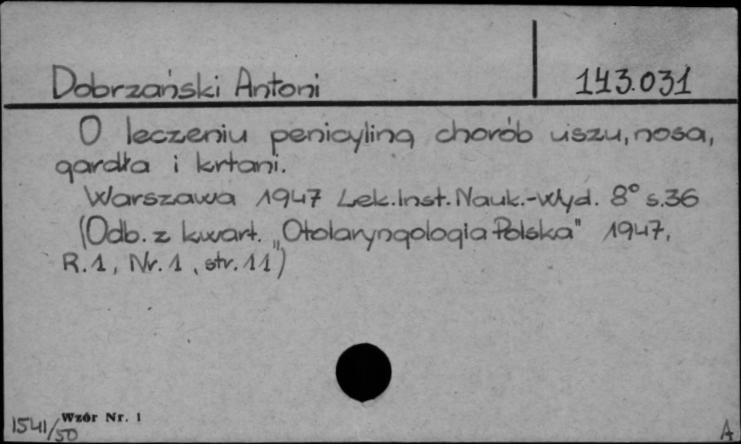 Dobrzański Antoni 143.031
O leczeniu penicyliną chorób uszu, nosa,
gardła i krtani.
Warszawa 1947 Lek. Inst. Nauk.-Wyd. 8° s.36
(Odb. z kwart. „Otolaryngologia Polska" 1947,
R.1, Nr.1, str.11)
Wzór Nr. 1
1541/50 A